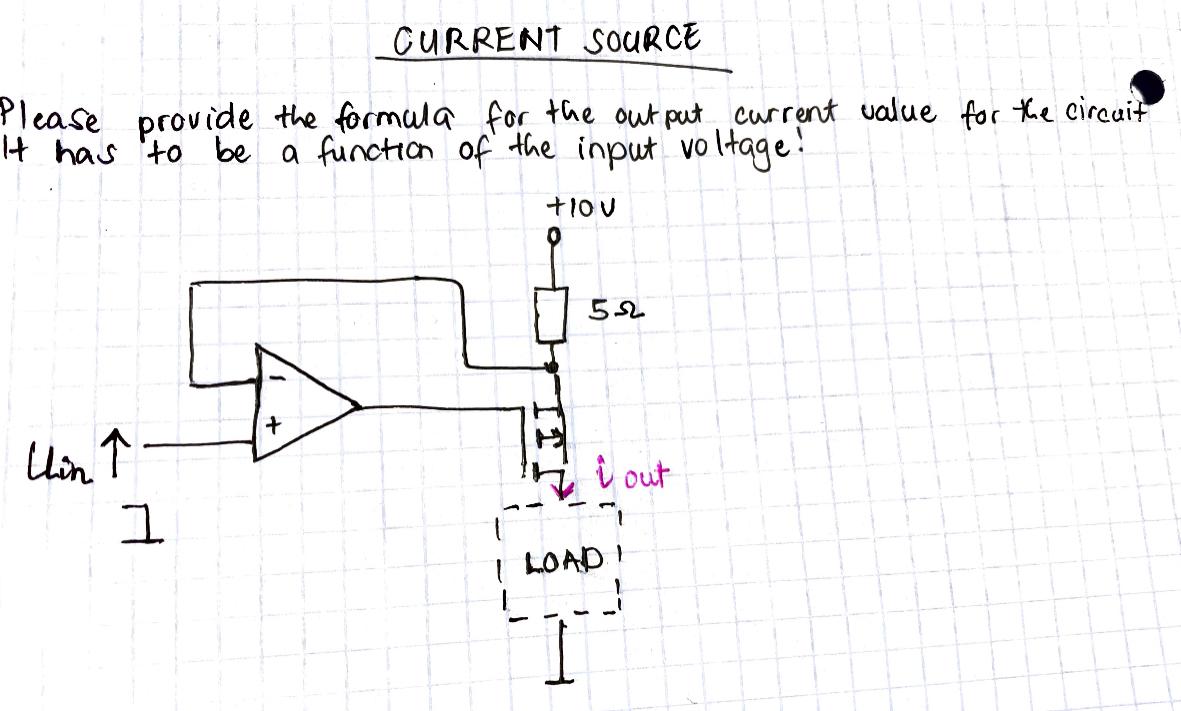 CURRENT SOURCE
Please provide the formula for the output current value for the circuit
It has to be a function of the input voltage!
+10V
5Ω
-
+
Uin
i out
LOAD